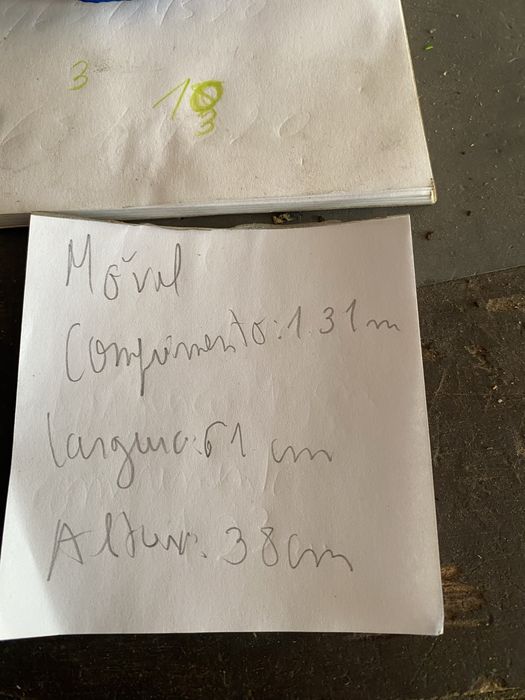 3
10
3
Móvel
Comprimento: 1.31 m
largura: 61 cm
Altura: 38 cm